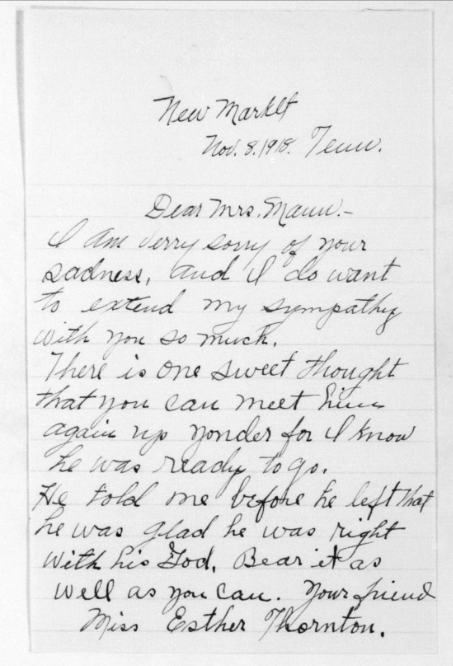 New Market
Nov. 8. 1918. Tenn.
Dear Mrs. Mann.-
I am verry sorry of your
sadness, and I do want
to extend my sympathy
with you so much.
There is one sweet thought
that you can meet him
again up yonder for I know
he was ready to go.
He told me before he left that
he was glad he was right
with his God. Bear it as
well as you can. Your friend
Miss Esther Thornton.